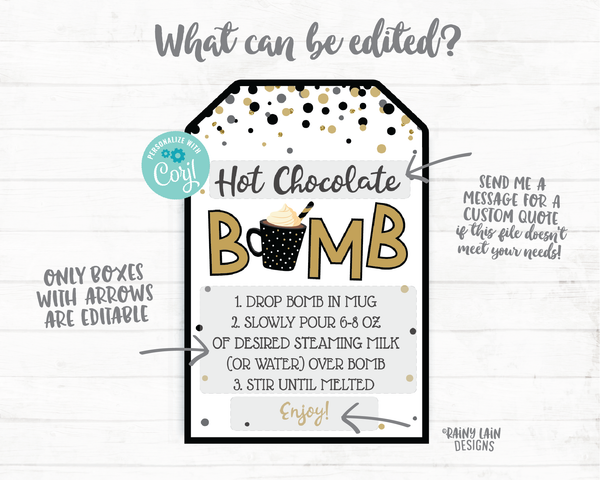 What can be edited?
PERSONALIZE WITH
Corjl
Hot Chocolate
B MB
SEND ME A
MESSAGE FOR A
CUSTOM QUOTE
if THIS FILE doesn't
MEET YOUR NEEDS!
ONLY BOXES
WITH ARROWS
ARE EDITABLE
1. DROP BOMB IN MUG
2. SLOWLY POUR 6-8 OZ
OF DESIRED STEAMING MILK
(OR WATER) OVER BOMB
3. STIR UNTIL MELTED
Enjoy!
©RAINY LAIN
DESIGNS